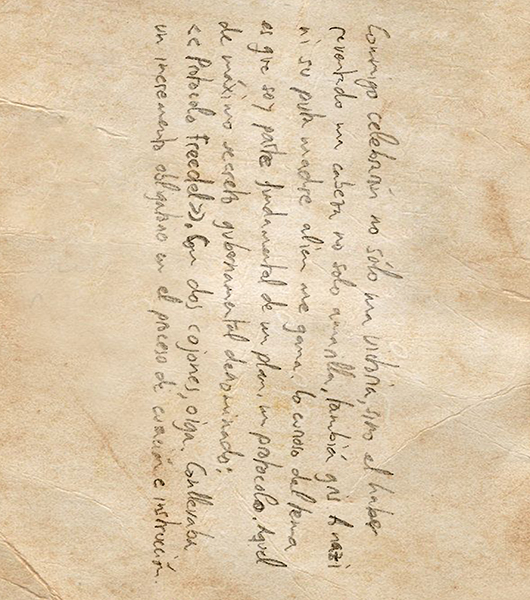 Conmigo celebrarán no sólo una victoria, sino el haber
reventado una cabeza no solo amarilla, también gris. A nazi
ni su puta madre alien me gana. Lo curioso del tema
es que soy parte fundamental de un plan, un protocolo. Aquel
de máximo secreto gubernamental denominado:
<< Protocolo Freedel>>. Con dos cojones, oiga. Conllevaba
un incremento obligatorio en el proceso de curación e instrucción.